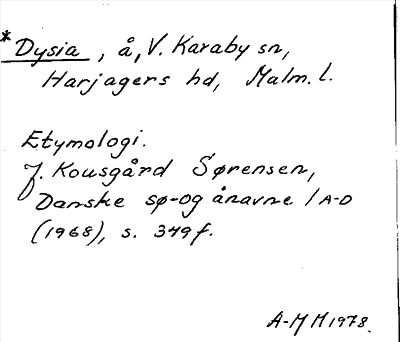 *Dysia, å, V. Karaby sn,
Harjagers hd, Malm. l.
Etymologi.
J. Kousgård Sørensen,
Danske sø- og ånavne 1 A-D
(1968), s. 349f.
A-M M 1978.